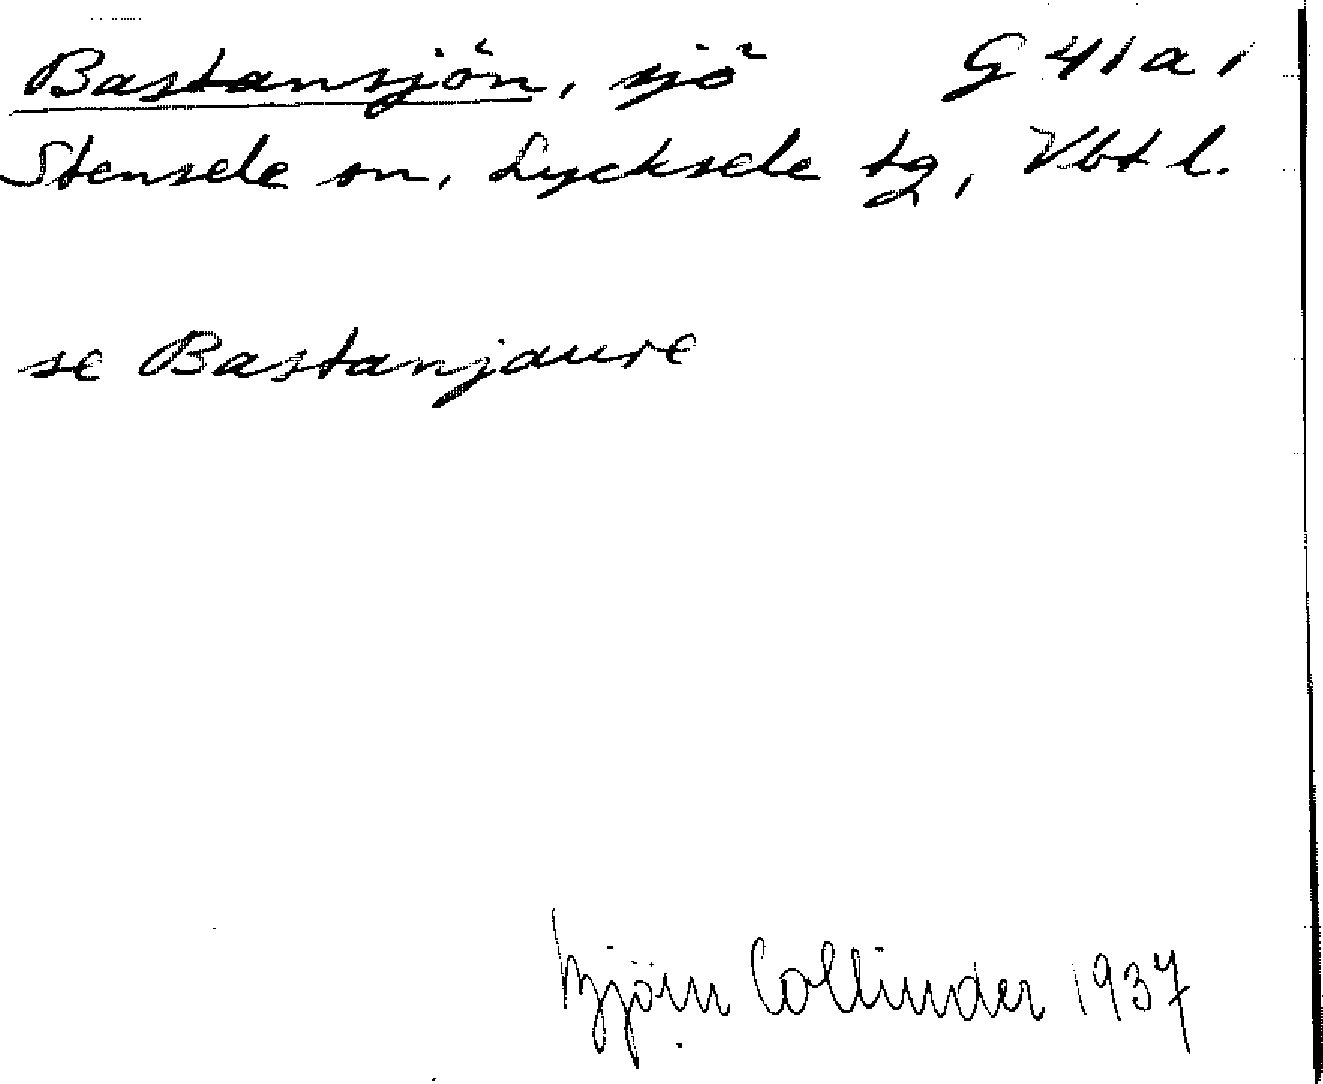 Bastansjön, sjö G 41 a 1
Stensele sn, Lycksele tg, Vbt l.
se Bastanjaure
Björn Collinder 1937